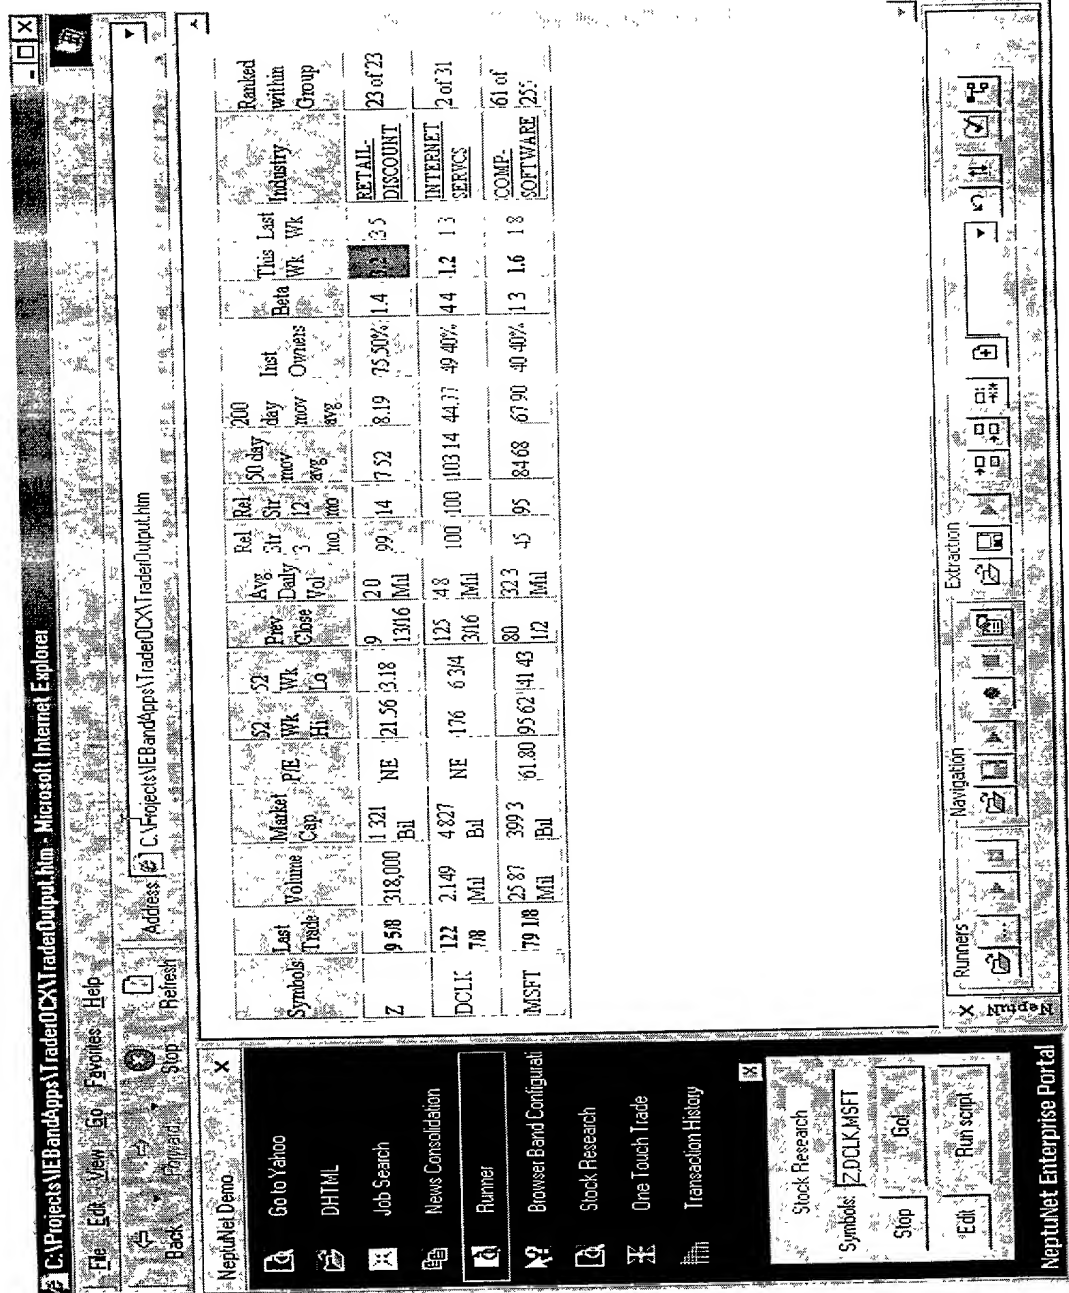 C:\Projects\IEBandApps\TraderOCX\TraderOutput.htm - Microsoft Internet Explorer
File Edit View Go Favorites Help
Back Forward Stop Refresh
Address C:\Projects\IEBandApps\TraderOCX\TraderOutput.htm
NeptuNet Demo
Go to Yahoo
DHTML
Job Search
News Consolidation
Runner
Browser Band Configurati
Stock Research
One Touch Trade
Transaction History
Stock Research
Symbols: Z,DCLK,MSFT
Stop Go!
Edit Run script
NeptuNet Enterprise Portal
Symbols Last Trade Volume Market Cap P/E 52 Wk Hi 52 Wk Lo Prev Close Avg Daily Vol Rel Str 3 mo Rel Str 12 mo 50 day mov avg 200 day mov avg Inst Owners Beta This Wk Last Wk Industry Ranked within Group
Z 9 5/8 318,000 1 321 Bil NE 21.56 3.18 9 13/16 2 0 Mil 99 14 7 52 8.19 75.50% 1.4 3 5 RETAIL-DISCOUNT 23 of 23
DCLK 122 7/8 2.149 Mil 4 827 Bil NE 176 6 3/4 125 3/16 4 8 Mil 100 100 103 14 44.77 49 40% 4 4 1.2 1 3 INTERNET SERVCS 2 of 31
MSFT 79 1/8 25 87 Mil 399 3 Bil 61.80 95 62 41 43 80 1/2 32 3 Mil 45 95 84 68 67 90 40 40% 1 3 1.6 1 8 COMP-SOFTWARE 61 of
NeptuN
Runners Navigation Extraction